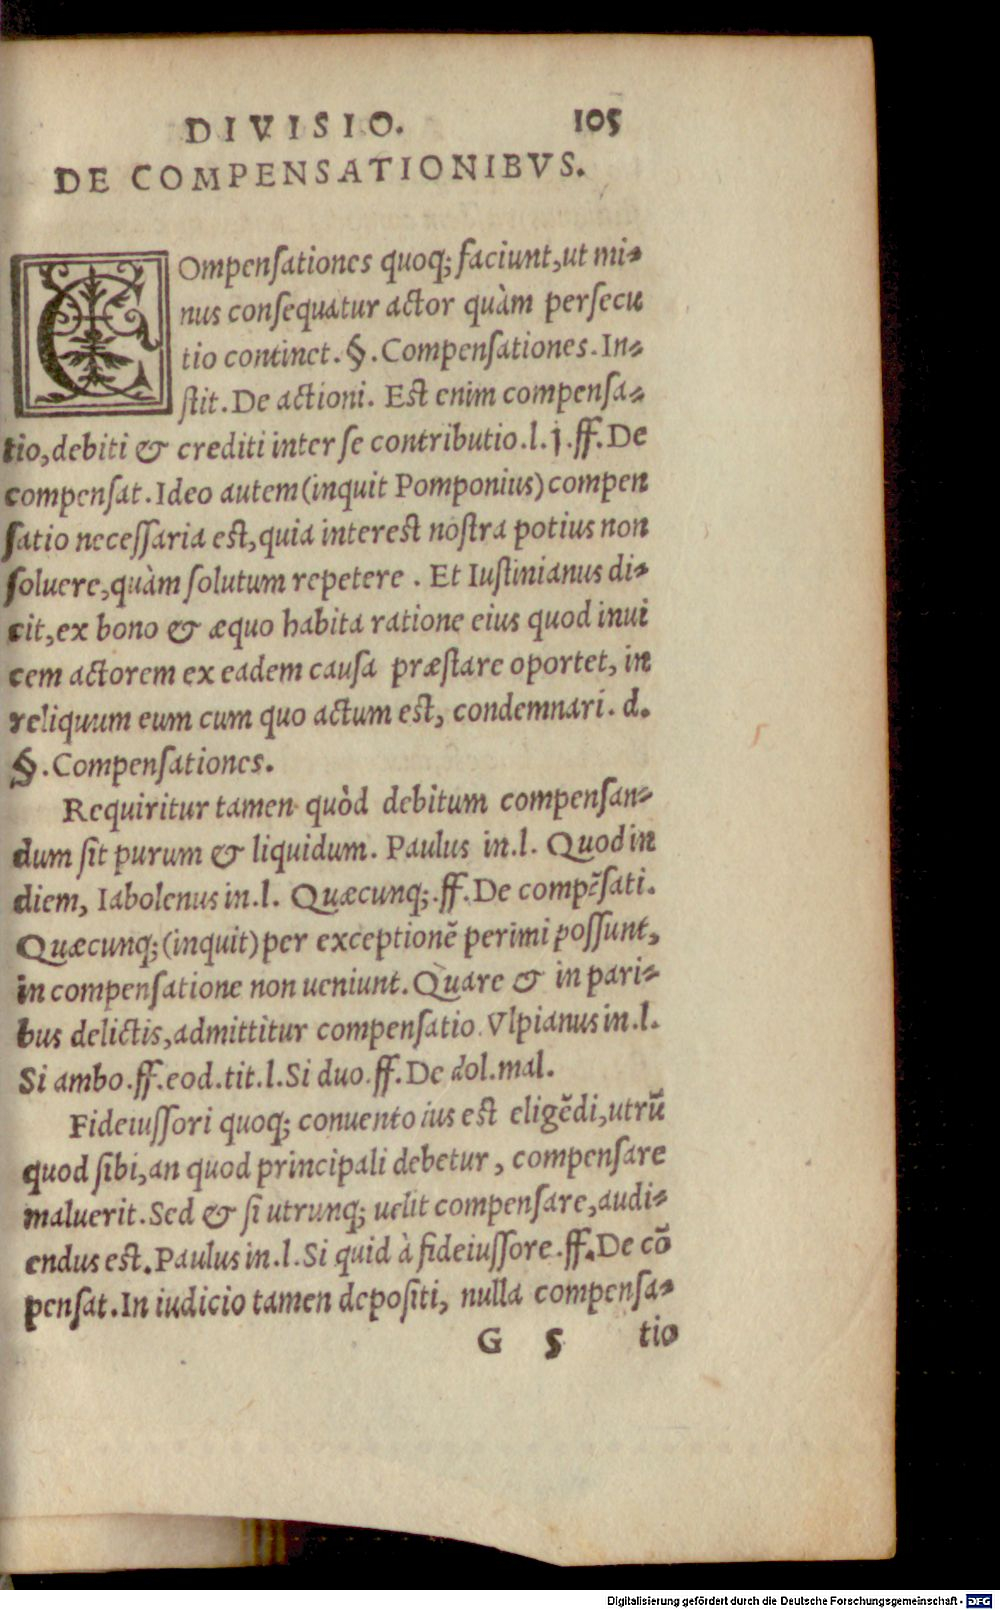 DIVISIO. 105
DE COMPENSATIONIBVS.
COmpenſationes quoq; faciunt, ut mi-
nus conſequatur actor quàm perſecu
tio continet. §. Compenſationes. In-
ſtit. De actioni. Eſt enim compenſa-
tio, debiti & crediti inter ſe contributio. l. j. ff. De
compenſat. Ideo autem (inquit Pomponius) compen
ſatio neceſſaria eſt, quia intereſt noſtra potius non
ſoluere, quàm ſolutum repetere. Et Iuſtinianus di-
cit, ex bono & æquo habita ratione eius quod inui
cem actorem ex eadem cauſa præſtare oportet, in
reliquum eum cum quo actum eſt, condemnari. d.
§. Compenſationes.
Requiritur tamen quòd debitum compenſan-
dum ſit purum & liquidum. Paulus in. l. Quod in
diem, Iabolenus in. l. Quæcunq;. ff. De compẽſati.
Quæcunq; (inquit) per exceptionẽ perimi poſſunt,
in compenſatione non ueniunt. Quare & in pari-
bus delictis, admittitur compenſatio. Vlpianus in. l.
Si ambo. ff. eod. tit. l. Si duo. ff. De dol. mal.
Fideiuſſori quoq; conuento ius eſt eligẽdi, utrũ
quod ſibi, an quod principali debetur, compenſare
maluerit. Sed & ſi utrunq; uelit compenſare, audi-
endus eſt. Paulus in. l. Si quid à fideiuſſore. ff. De cõ
penſat. In iudicio tamen depoſiti, nulla compenſa-
G 5 tio
Digitalisierung gefördert durch die Deutsche Forschungsgemeinschaft - DFG